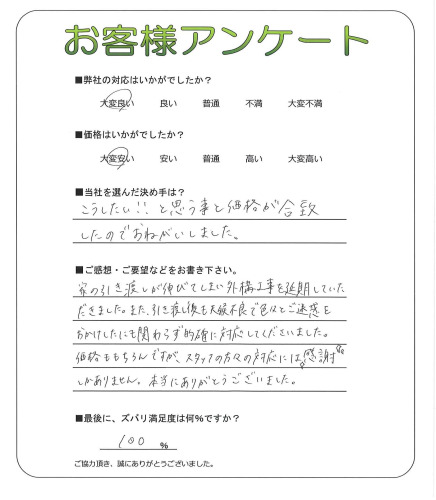 お客様アンケート
■弊社の対応はいかがでしたか？
大変良い 良い 普通 不満 大変不満
■価格はいかがでしたか？
大変安い 安い 普通 高い 大変高い
■当社を選んだ決め手は？
こうしたい!!と思う事と価格が合致
したのでおねがいしました。
■ご感想・ご要望などをお書き下さい。
家の引き渡しが伸びてしまい外構工事を延期していた
だきました。また、引き渡し後も天候不良で色々とご迷惑を
おかけしたにも関わらず的確に対応してくださいました。
価格ももちろんですが、スタッフの方々の対応には感謝
しかありません。本当にありがとうございました。
■最後に、ズバリ満足度は何％ですか？
100 ％
ご協力頂き、誠にありがとうございました。